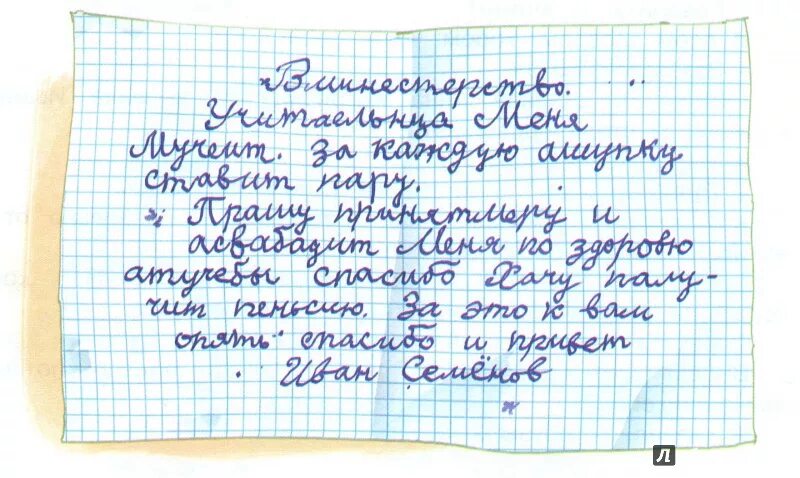 Вминестерство.
Учитаельнца Меня
Мучеит. За каждую ашупку
ставит пару.
Прашу принятмеру и
асвабадит Меня по здоровю
атучебы спасибо Хачу палу-
чит пеньсию. За это к вам
опять спасибо и привет
Иван Семёнов
Л